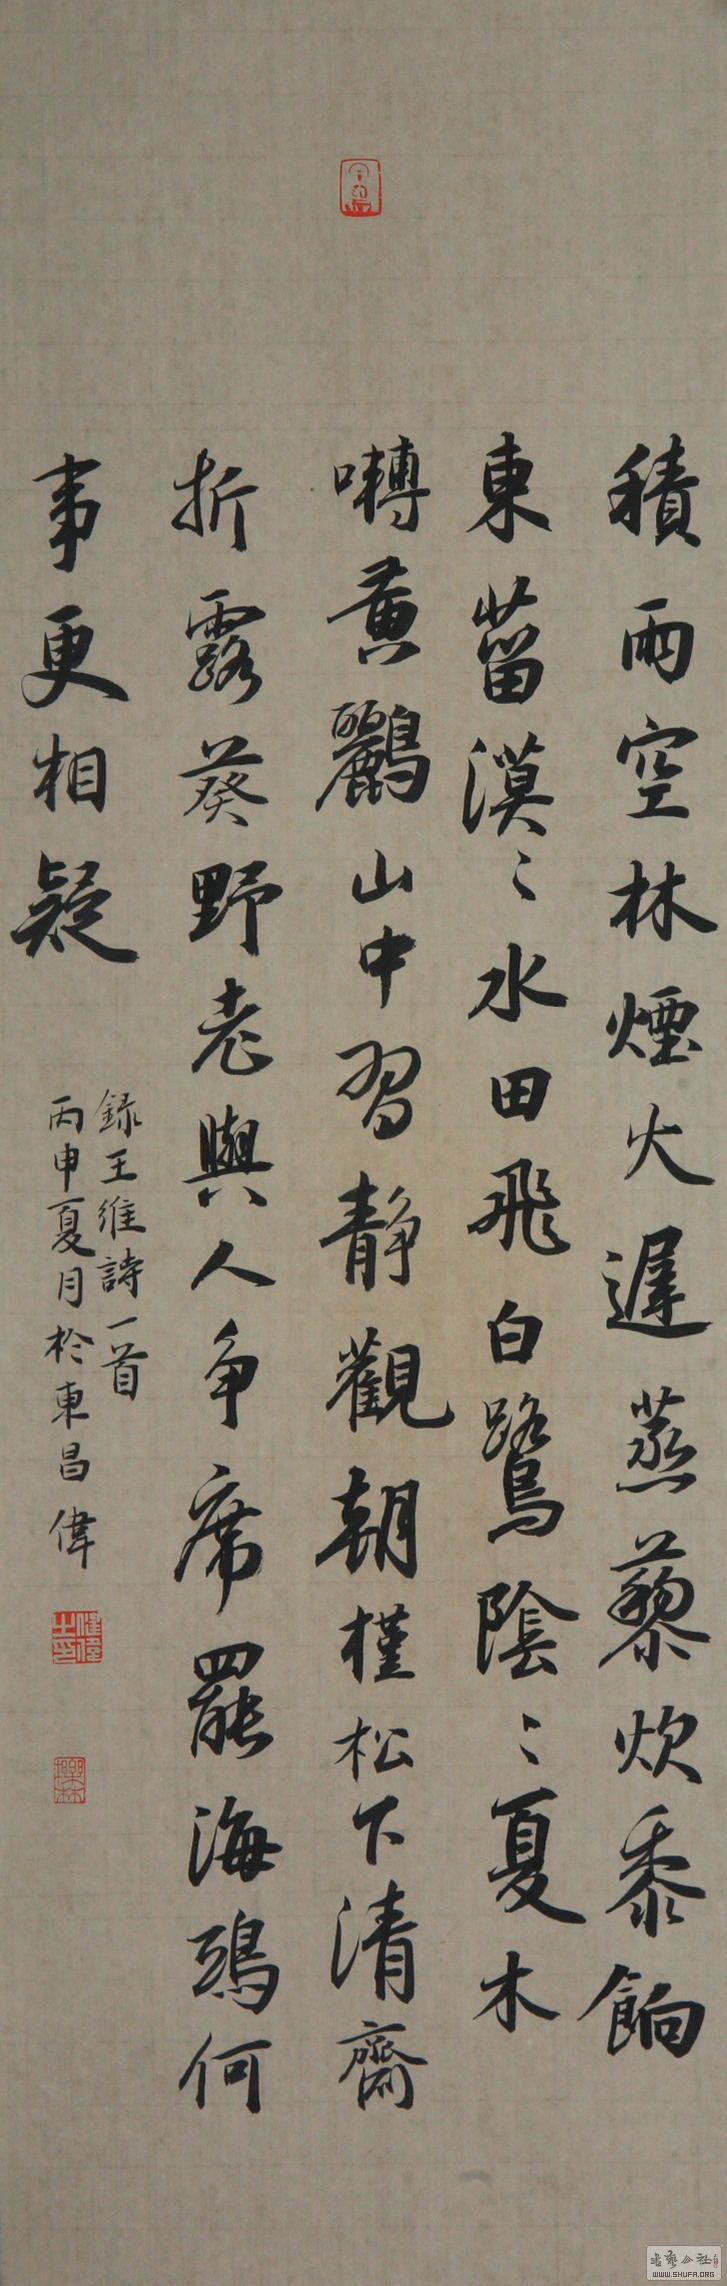 積雨空林煙火遲蒸藜炊黍餉
東菑漠〻水田飛白鷺陰〻夏木
囀黄鸝山中習静觀朝槿松下清齋
折露葵野老與人争席罷海鷗何
事更相疑
録王維詩一首
丙申夏月於東昌偉
書藝公社
WWW.SHUFA.ORG